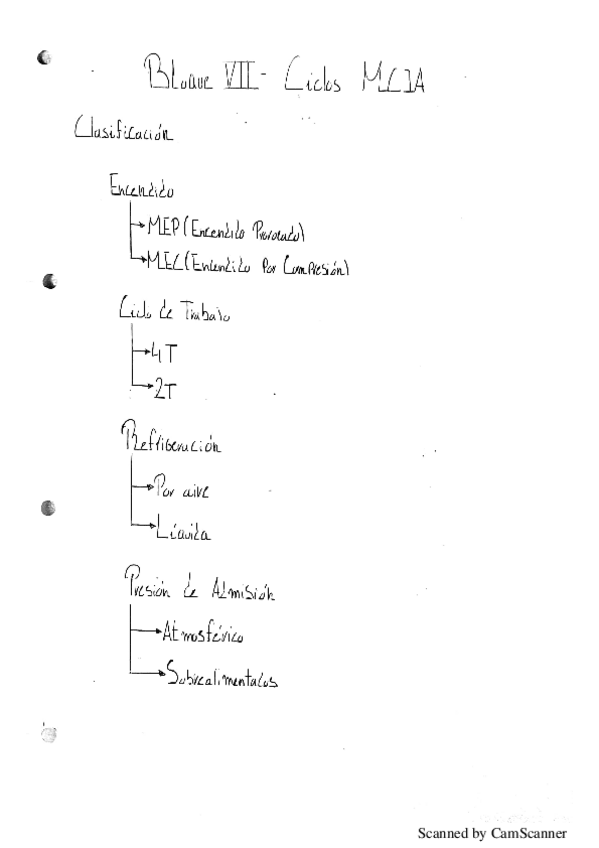 Bloque VII - Ciclos MCIA
Clasificación
Encendido
MEP (Encendido Provocado)
MEC (Encendido Por Compresión)
Ciclo de Trabajo
4T
2T
Refrigeración
Por aire
Líquida
Presión de Admisión
Atmosférico
Sobrealimentados
Scanned by CamScanner